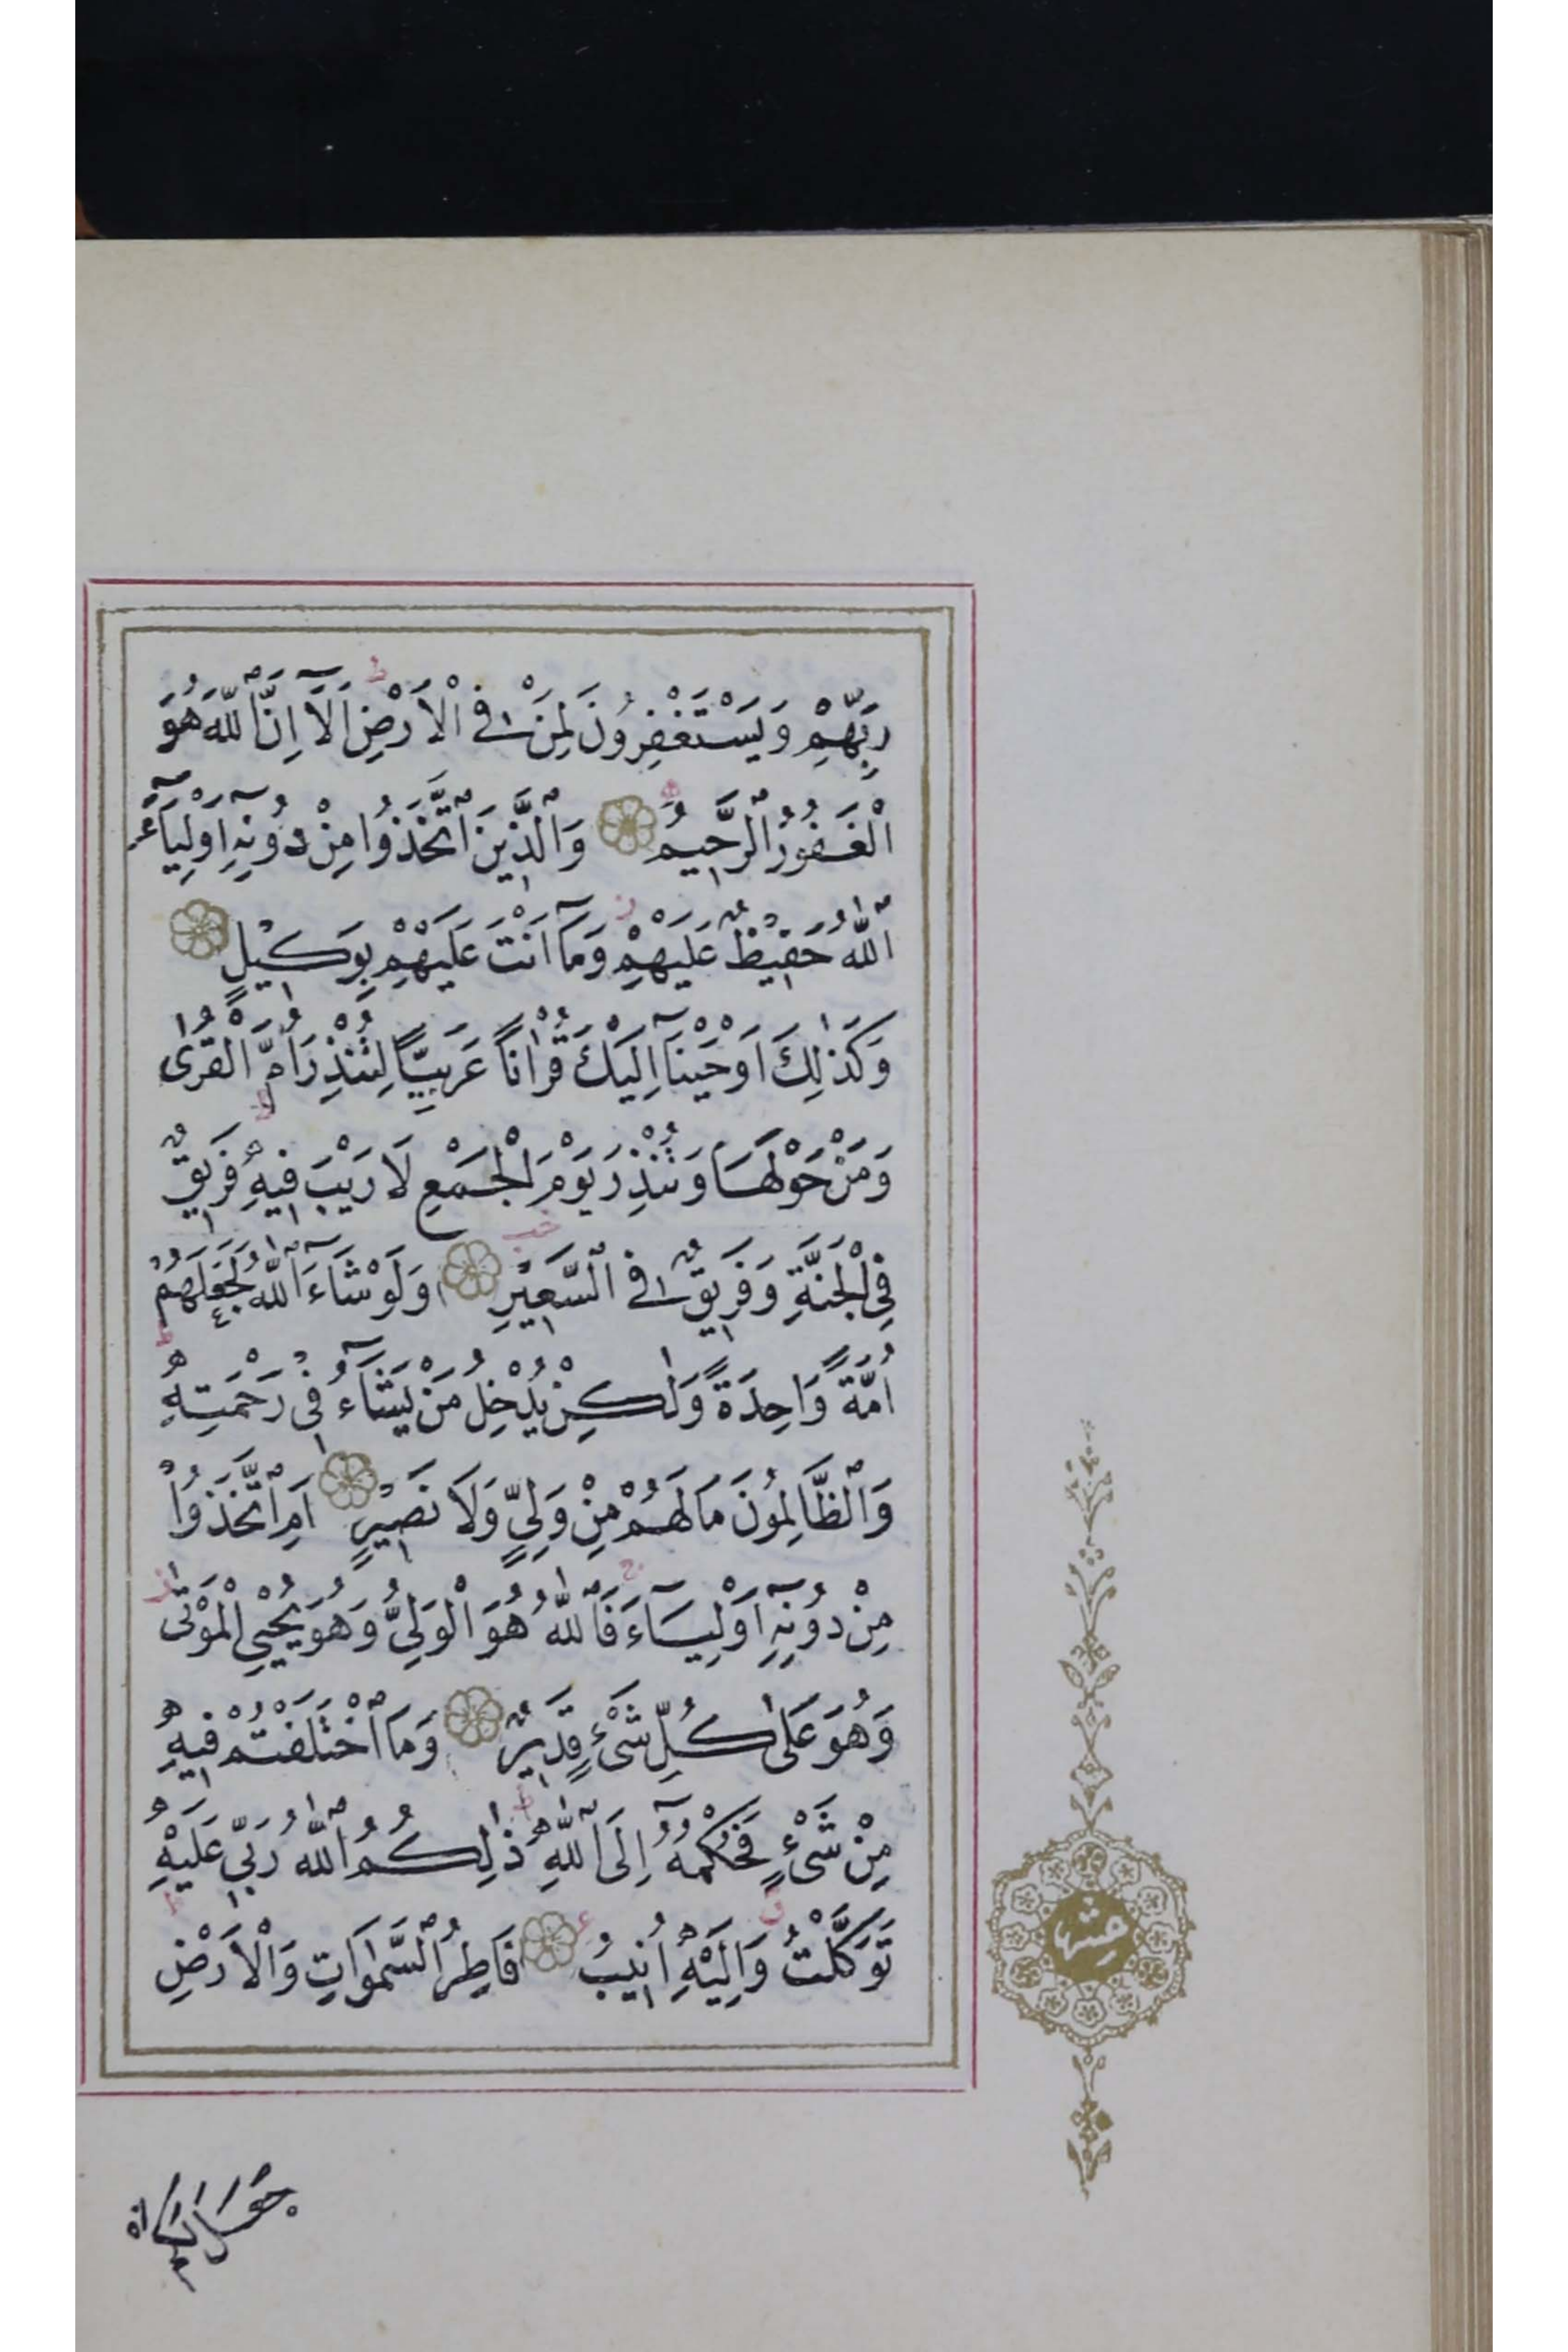 رَبِّهِمْ وَيَسْتَغْفِرُونَ لِمَنْ فِي الْاَرْضِ اَلَٓا اِنَّ اللّٰهَ هُوَ
الْغَفُورُ الرَّحِيمُ وَالَّذِينَ اتَّخَذُوا مِنْ دُونِهِٓ اَوْلِيَٓاءَ
اللّٰهُ حَفِيظٌ عَلَيْهِمْ وَمَٓا اَنْتَ عَلَيْهِمْ بِوَكِيلٍ
وَكَذٰلِكَ اَوْحَيْنَٓا اِلَيْكَ قُرْاٰنًا عَرَبِيًّا لِتُنْذِرَ اُمَّ الْقُرٰى
وَمَنْ حَوْلَهَا وَتُنْذِرَ يَوْمَ الْجَمْعِ لَا رَيْبَ فِيهِ فَرِيقٌ
فِي الْجَنَّةِ وَفَرِيقٌ فِي السَّعِيرِ وَلَوْ شَٓاءَ اللّٰهُ لَجَعَلَهُمْ
اُمَّةً وَاحِدَةً وَلٰكِنْ يُدْخِلُ مَنْ يَشَٓاءُ فِي رَحْمَتِهِ
وَالظَّالِمُونَ مَا لَهُمْ مِنْ وَلِيٍّ وَلَا نَصِيرٍ اَمِ اتَّخَذُوا
مِنْ دُونِهِٓ اَوْلِيَٓاءَ فَاللّٰهُ هُوَ الْوَلِيُّ وَهُوَ يُحْيِي الْمَوْتٰى
وَهُوَ عَلٰى كُلِّ شَيْءٍ قَدِيرٌ وَمَا اخْتَلَفْتُمْ فِيهِ
مِنْ شَيْءٍ فَحُكْمُهُٓ اِلَى اللّٰهِ ذٰلِكُمُ اللّٰهُ رَبِّي عَلَيْهِ
تَوَكَّلْتُ وَاِلَيْهِ اُنِيبُ فَاطِرُ السَّمٰوَاتِ وَالْاَرْضِ
جَعَلَ لَكُمْ